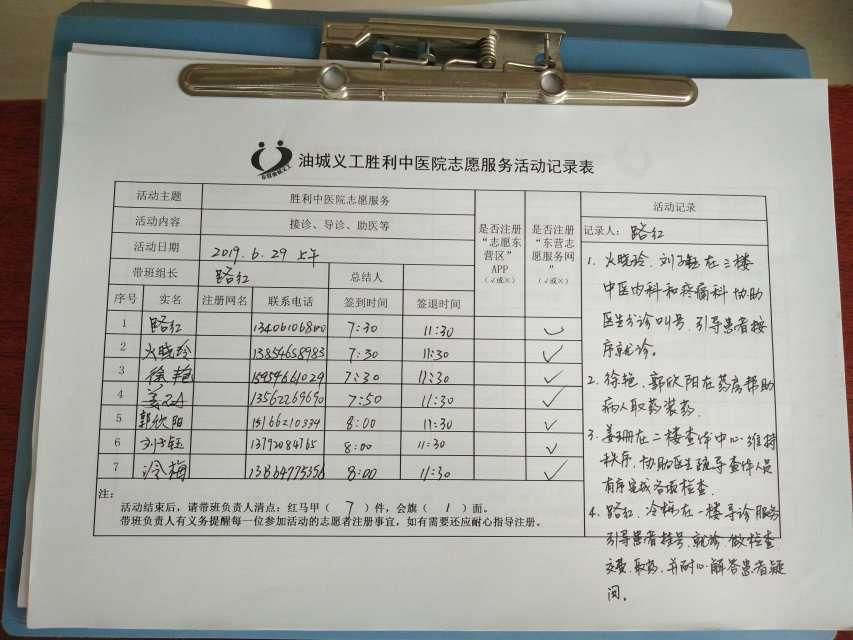 油城义工胜利中医院志愿服务活动记录表
活动主题 胜利中医院志愿服务
活动内容 接诊、导诊、助医等
活动日期 2019.6.29 上午
带班组长 路红 总结人
是否注册“志愿东营区”APP（√或×）
是否注册“东营志愿服务网”（√或×）
序号 实名 注册网名 联系电话 签到时间 签退时间
1 路红 13406106800 7:30 11:30 ✓
2 火晓玲 13854658983 7:30 11:30 ✓
3 徐艳 15954661029 7:30 11:30 ✓
4 姜珊 13562269690 7:50 11:30 ✓
5 郭欣阳 15166210334 8:00 11:30 ✓
6 刘子钰 13792084765 8:00 11:30 ✓
7 冷梅 13864775356 8:00 11:30 ✓
注：
活动结束后，请带班负责人清点：红马甲（ 7 ）件，会旗（ 1 ）面。
带班负责人有义务提醒每一位参加活动的志愿者注册事宜，如有需要还应耐心指导注册。
活动记录
记录人： 路红
1. 火晓玲、刘子钰在三楼
中医内科和疼痛科协助
医生分诊叫号，引导患者按
序就诊。
2. 徐艳、郭欣阳在药房帮助
病人取药装药.
3. 姜珊在二楼查体中心维持
秩序，协助医生疏导查体人员
有序完成各项检查.
4. 路红、冷梅在一楼导诊服务
引导患者挂号、就诊、做检查
交费、取药，并耐心解答患者疑
问。